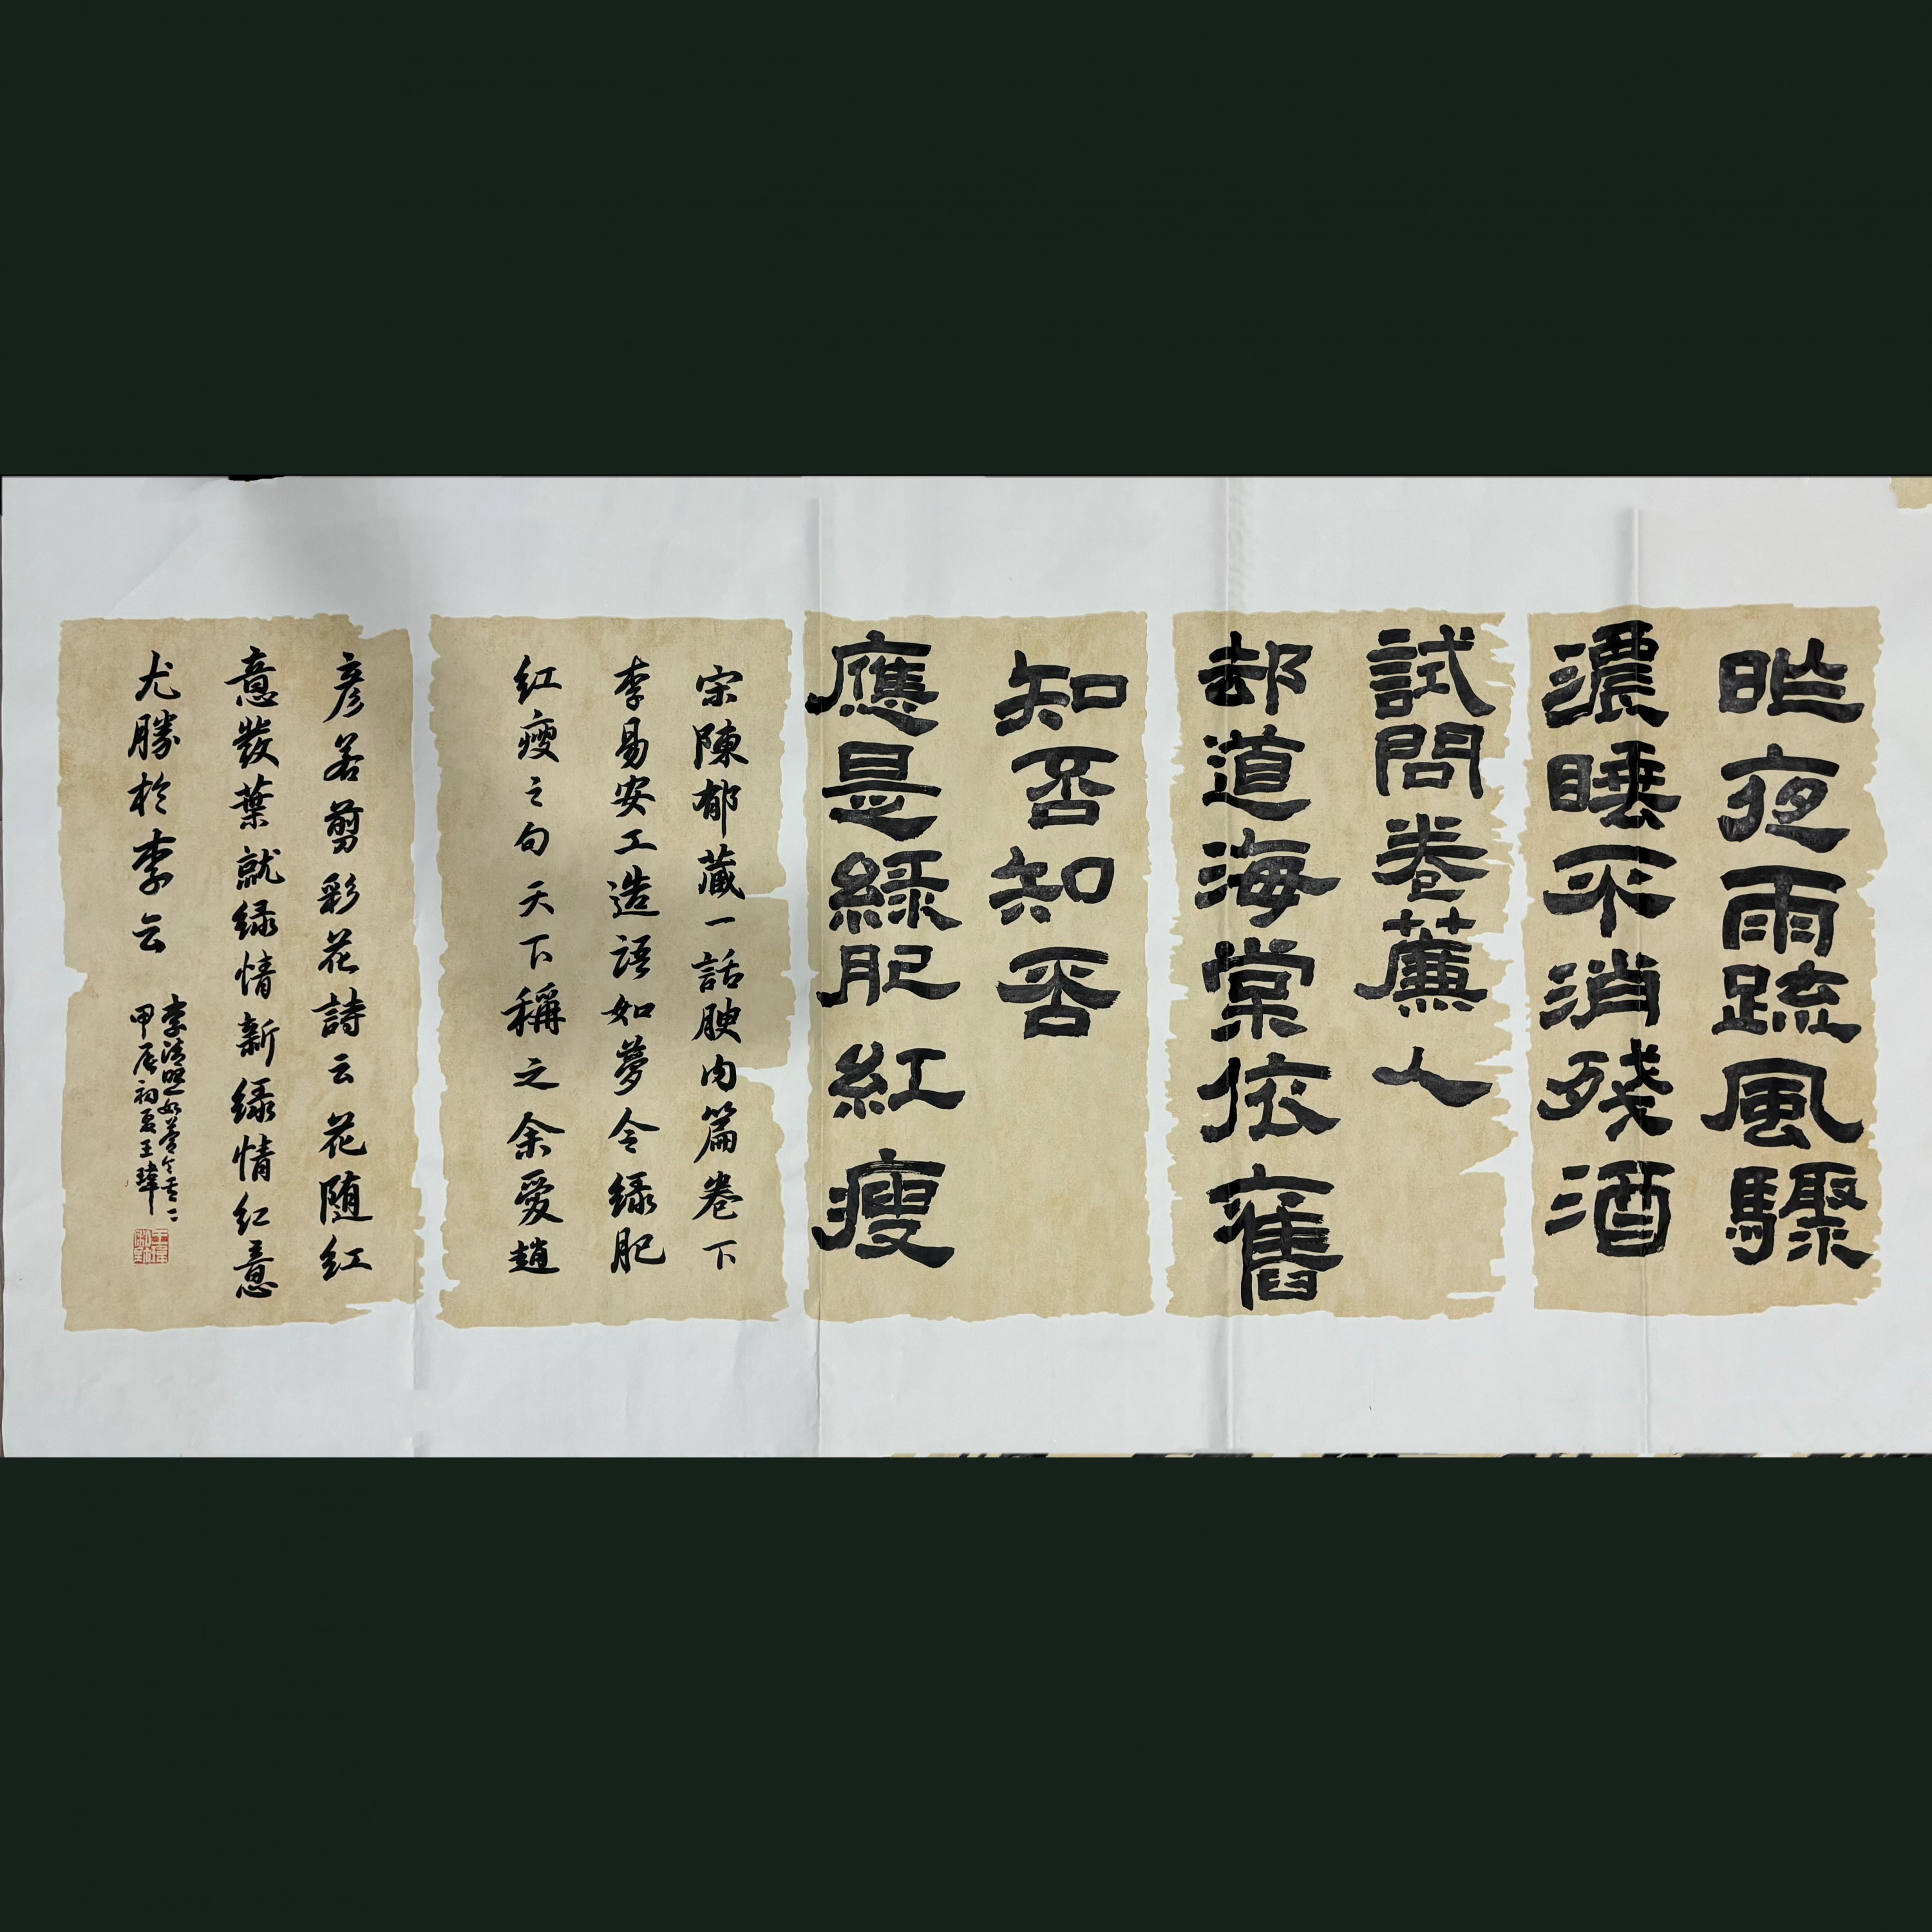 昨夜雨疏風驟
濃睡不消殘酒
試問卷簾人
却道海棠依舊
知否知否
應是綠肥紅瘦
宋陳郁藏一話腴内篇卷下
李易安工造語如夢令緑肥
红瘦之句天下稱之余愛趙
彦若剪彩花詩云花随红
意發葉就緑情新緑情红意
尤勝於李云
李清照如夢令
甲辰初夏王瑋